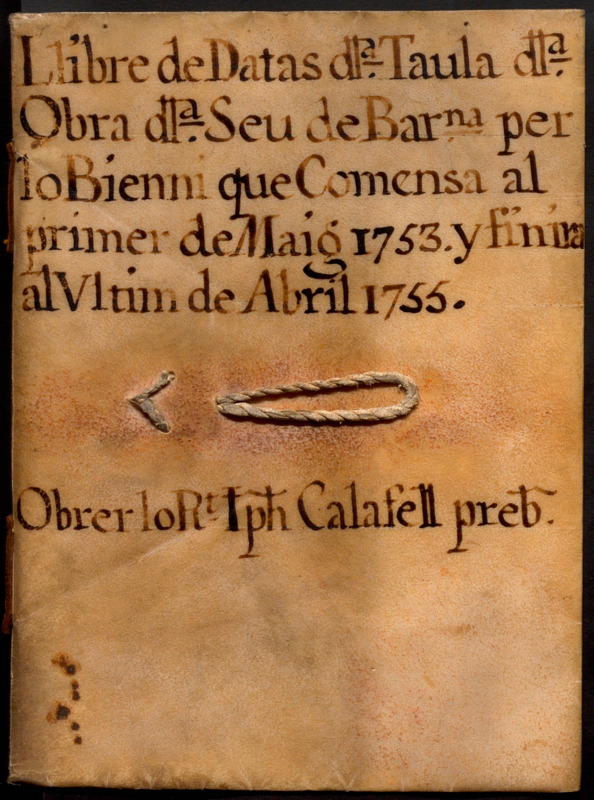 Llibre de Datas dlª. Taula dlª.
Obra dlª. Seu de Barⁿª per
lo Bienni que Comensa al
primer de Maig 1753. y finira
al Vltim de Abril 1755.
Obrer lo Rt. Iph Calafell preb.